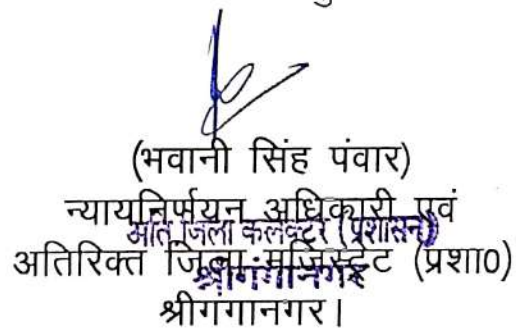 (भवानी सिंह पंवार)
न्यायनिर्णयन अधिकारी एवं
अति जिला कलक्टर (प्रशासन)
अतिरिक्त जिला मजिस्ट्रेट (प्रशा0)
श्रीगंगानगर
श्रीगंगानगर।